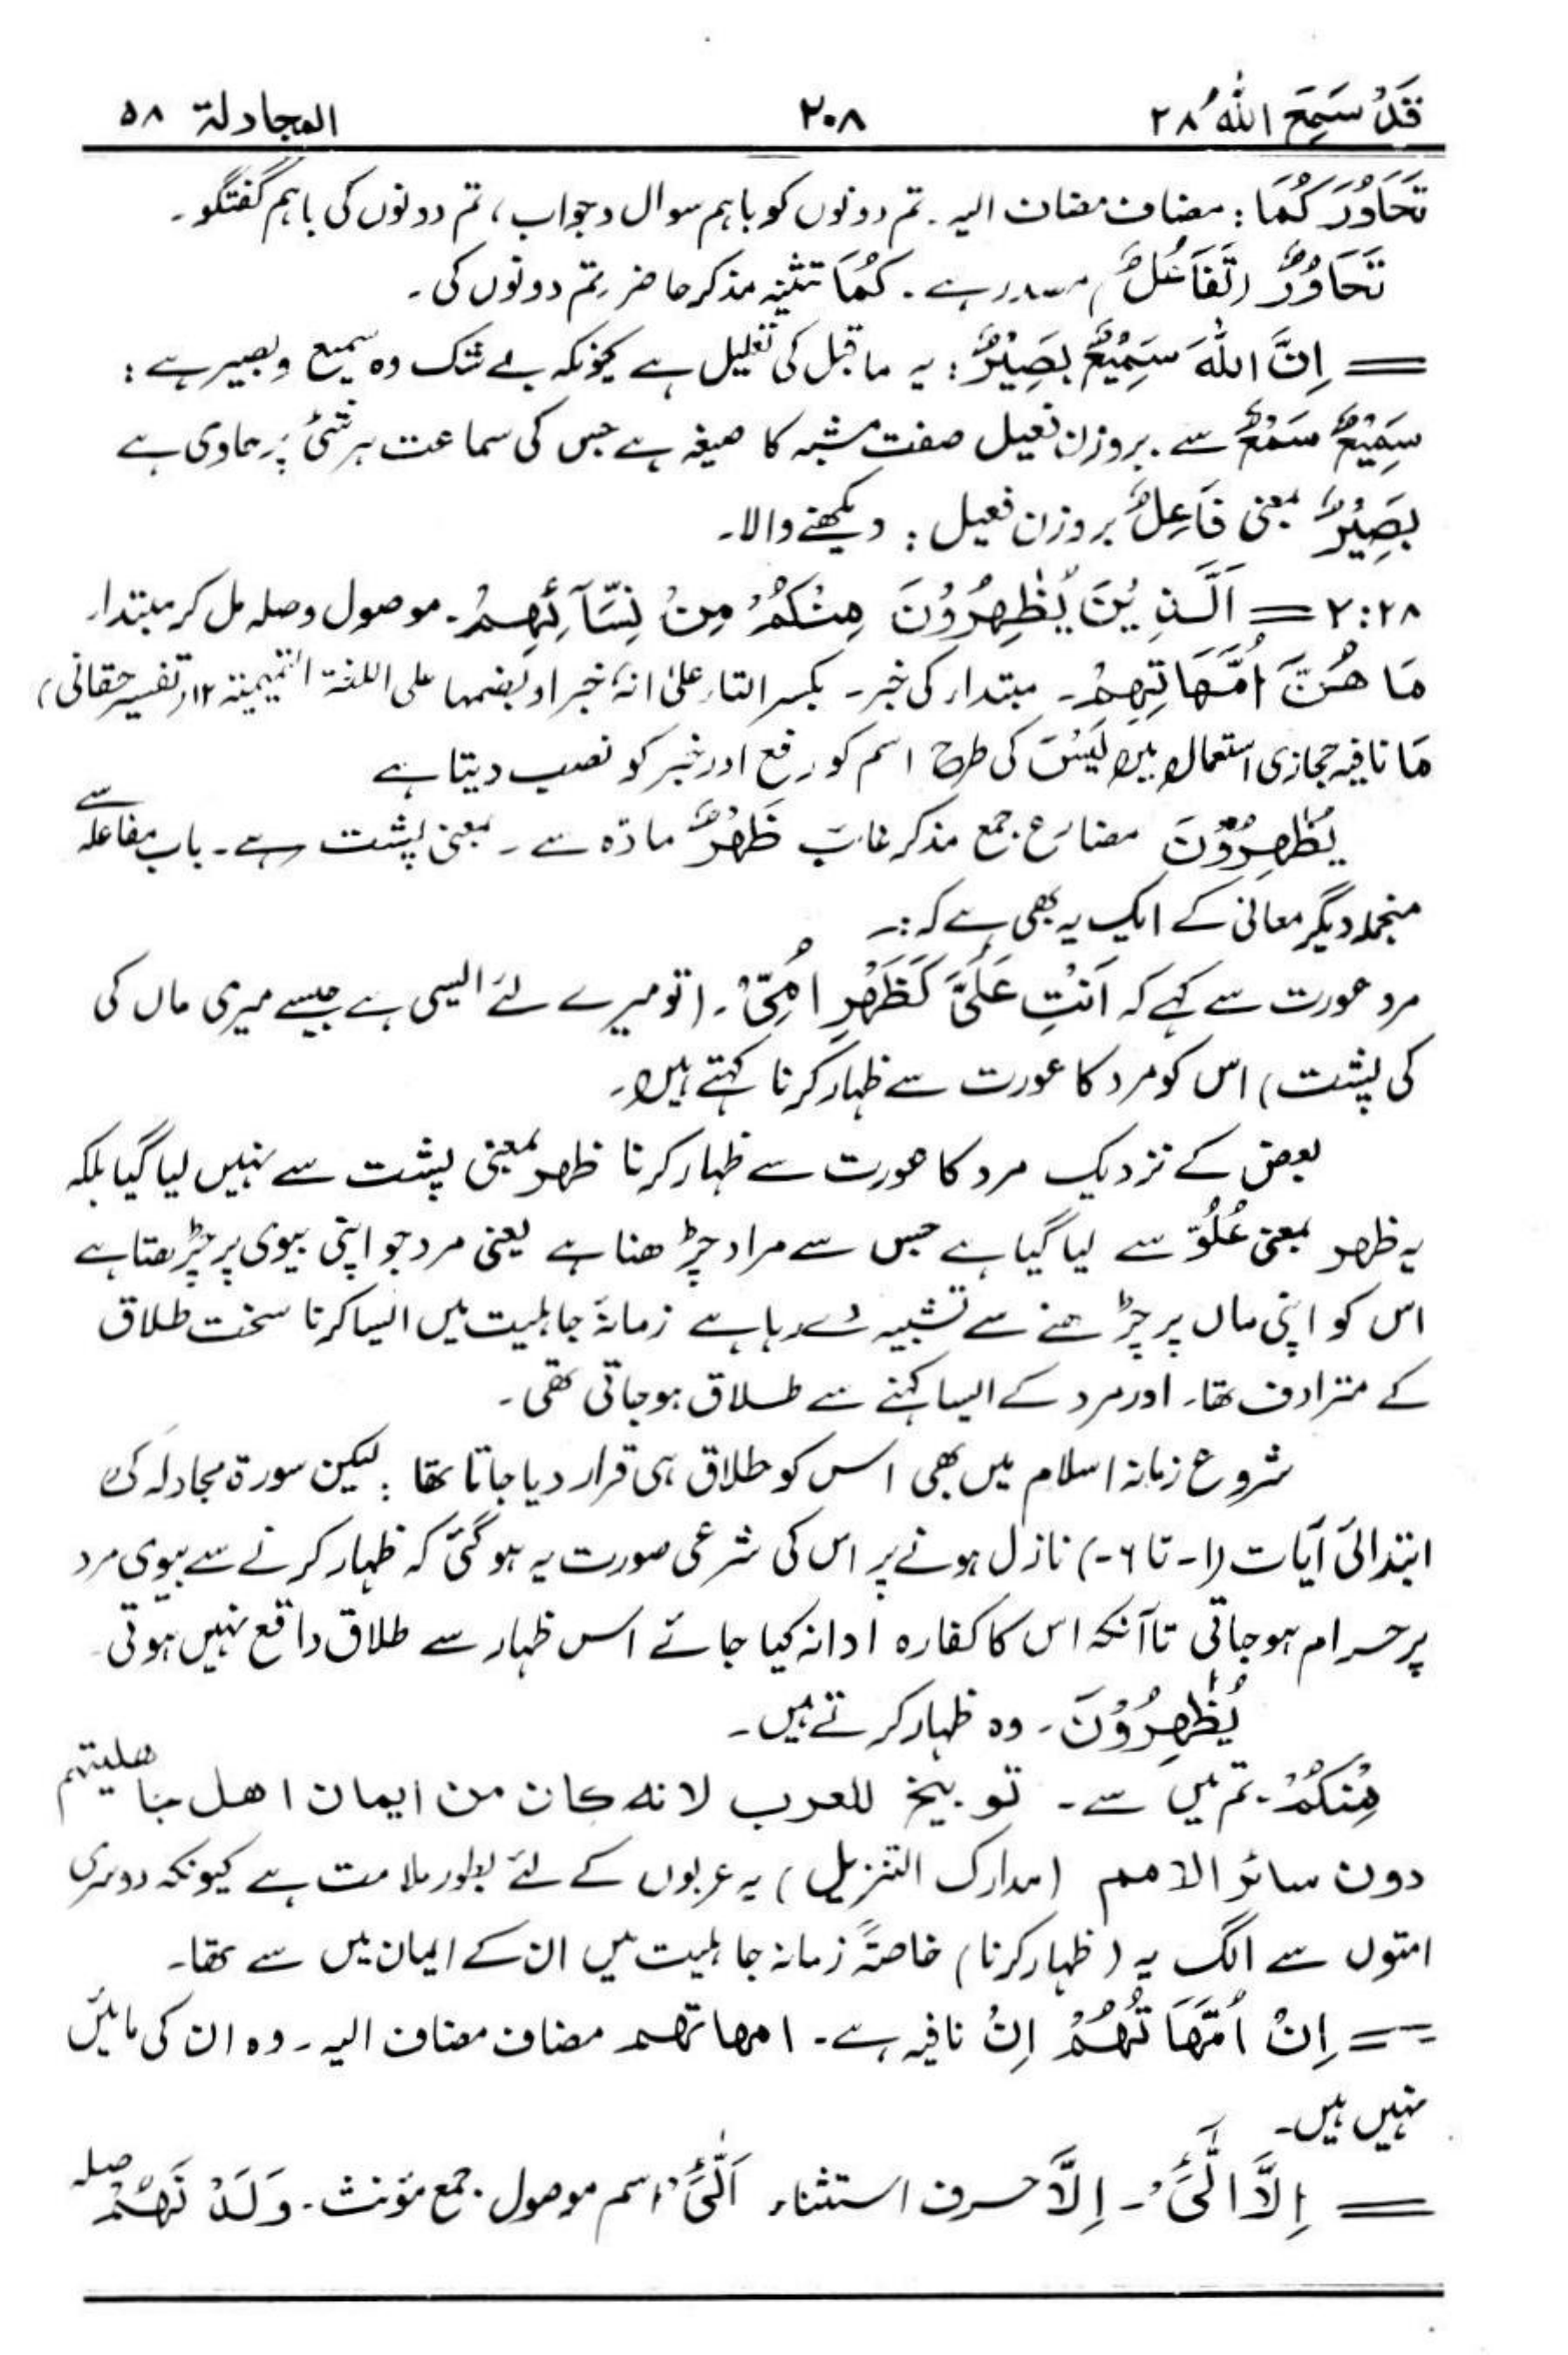 قَدْ سَمِعَ اللّٰهُ ۲۸ ۲۰۸ المجادلۃ ۵۸
تَحَاوُرَكُمَا : مضاف مضاف الیہ . تم دونوں کو باہم سوال وجواب ، تم دونوں کی باہم گفتگو ۔
تَحَاوُرٌ (تَفَاعُلٌ) مصدر ہے ۔ كُمَا تثنیہ مذکر حاضر ۔ تم دونوں کی ۔
= اِنَّ اللّٰهَ سَمِيْعٌ بَصِيْرٌ : یہ ماقبل کی تعلیل ہے کیونکہ بے شک وہ سمیع وبصیر ہے :
سَمِيْعٌ سَمْعٌ سے . بروزن فعیل صفت مشبہ کا صیغہ ہے جس کی سماعت ہر شئی پر حاوی ہے
بَصِيْرٌ بمعنی فَاعِلٌ بروزن فعیل : دیکھنے والا۔
۲:۲۸ = اَلَّذِيْنَ يُظٰهِرُوْنَ مِنْكُمْ مِنْ نِّسَآئِهِمْ ۔ موصول وصلہ مل کر مبتدار
مَا هُنَّ اُمَّهَاتِهِمْ ۔ مبتدار کی خبر ۔ بکسر التار علیٰ انہٗ خبر او بضمها علی اللغۃ التمیمیۃ ۱۲ (تفسیر حقانی)
مَا نافیہ حجازی استعمال میں لَيْسَ کی طرح اسم کو رفع اور خبر کو نصب دیتا ہے
يُظٰهِرُوْنَ مضارع جمع مذکر غائب ظَهْرٌ مادّہ سے ۔ بمعنی پشت ہے ۔ باب مفاعلہ سے
منجملہ دیگر معانی کے ایک یہ بھی ہے کہ :۔
مرد عورت سے کہے کہ اَنْتِ عَلَيَّ كَظَهْرِ اُمِّيْ ۔ (تو میرے لئے ایسی ہے جیسے میری ماں کی
کی پشت) اس کو مرد کا عورت سے ظہار کرنا کہتے ہیں۔
بعض کے نزدیک مرد کا عورت سے ظہار کرنا ظھر بمعنی پشت سے نہیں لیا گیا بلکہ
یہ ظھر بمعنی عُلُوّ سے لیا گیا ہے جس سے مراد چڑھنا ہے یعنی مرد جو اپنی بیوی پر چڑھتا ہے
اس کو اپنی ماں پر چڑھنے سے تشبیہ دے رہا ہے زمانۂ جاہلیت میں ایسا کرنا سخت طلاق
کے مترادف تھا۔ اور مرد کے ایسا کہنے سے طلاق ہو جاتی تھی ۔
شروع زمانہ اسلام میں بھی اس کو طلاق ہی قرار دیا جاتا تھا : لیکن سورۃ مجادلہ کی
ابتدائی آیات (۱- تا ۶-) نازل ہونے پر اس کی شرعی صورت یہ ہو گئی کہ ظہار کرنے سے بیوی مرد
پر حرام ہو جاتی تاآنکہ اس کا کفارہ ادا نہ کیا جائے اس ظہار سے طلاق واقع نہیں ہوتی۔
يُظٰهِرُوْنَ ۔ وہ ظہار کرتے ہیں ۔
مِنْكُمْ ۔ تم میں سے ۔ توبیخ للعرب لانه کان من ایمان اھل جاھلیتھم
دون سائر الامم (مدارک التنزیل) یہ عربوں کے لئے بطور ملامت ہے کیونکہ دوسری
امتوں سے الگ یہ (ظہار کرنا) خاصۃً زمانہ جاہلیت میں ان کے ایمان میں سے تھا۔
= اِنْ اُمَّهَاتُهُمْ اِنْ نافیہ ہے ۔ امھاتھم مضاف مضاف الیہ ۔ وہ ان کی مائیں
نہیں ہیں۔
= اِلَّا الّٰٓئِيْ ۔ اِلَّا حرف استثناء الّٰٓئِيْ اسم موصول جمع مؤنث ۔ وَلَدْنَهُمْ صلہ